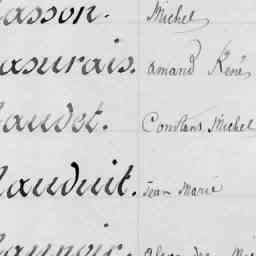 asson. Michel
asurais. amand René
audet. Constans Michel
auduit. Jean Marie
aunoir.